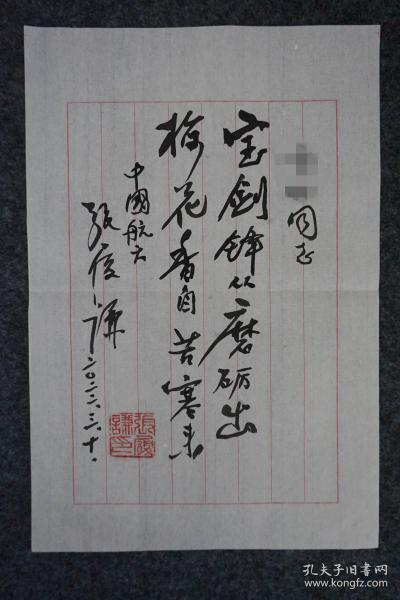 同志
宝剑锋从磨砺出
梅花香自苦寒来
中國航天
张履谦 二〇二二.三.十.
張履謙印
孔夫子旧书网
www.kongfz.com